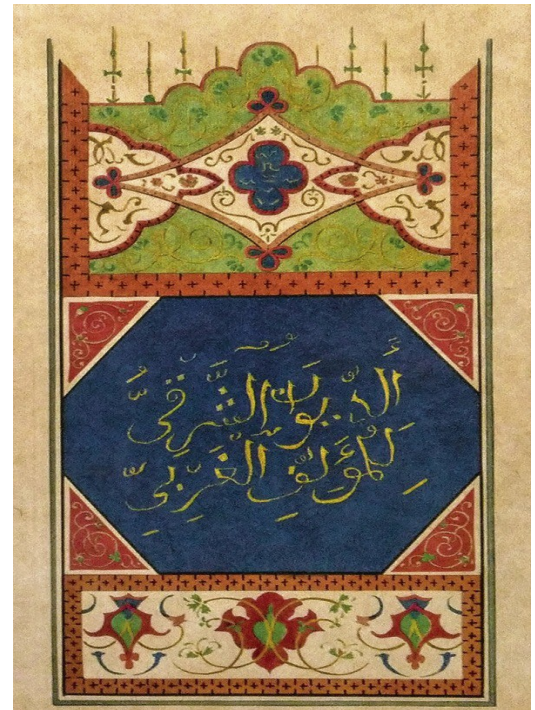 أَلدِّيوَانُ الشَّرْقِيُّ
لِلْمُؤَلِّفِ الغَرْبِيِّ